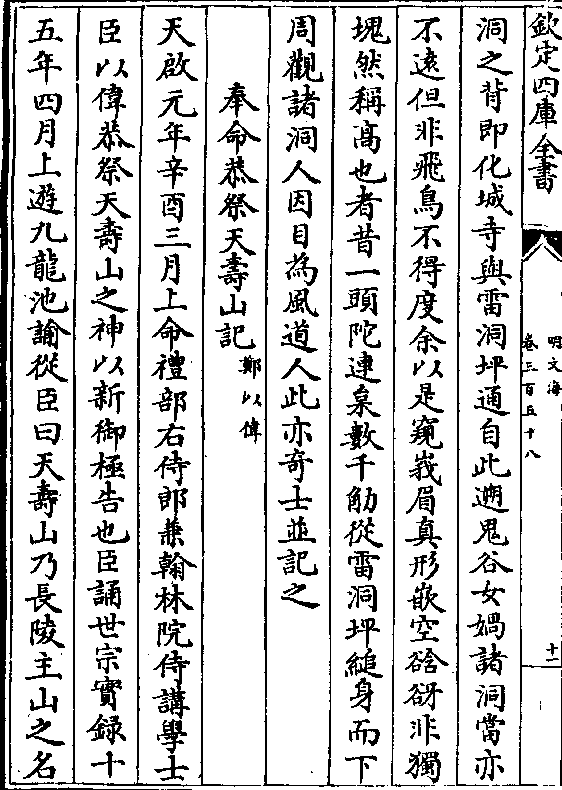 欽定四庫全書
明文海
卷三百五十八
十一
洞之背即化城寺與雷洞坪通自此遡鬼谷女媧諸洞當亦
不逺但非飛鳥不得度余以是窺峩眉真形嵌空谽谺非獨
塊然稱髙也者昔一頭陀連枲數千觔從雷洞坪縋身而下
周觀諸洞人因目為風道人此亦竒士並記之
奉命恭祭天壽山記鄭以偉
天啟元年辛酉三月上命禮部右侍郎兼翰林院侍講學士
臣以偉恭祭天壽山之神以新御極告也臣誦世宗實録十
五年四月上遊九龍池諭從臣曰天壽山乃長陵主山之名